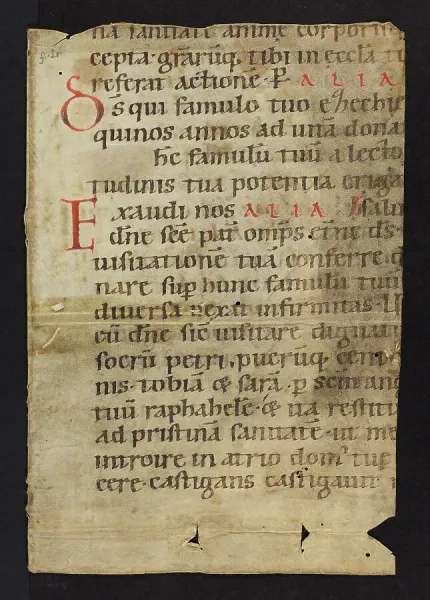 na sanitate anime corporisq
cepta. grarūq. tibi in eccla tu
referat actionē. P ALIA
Ds qui famulo tuo ezechie
quinos annos ad uitā dona
hc famulū tuū a lecto
tudinis tua potentia eriga
Exaudi nos ALIA
dne scē pat omps. etne ds.
uisitationē tuā conferre d
nare sup hunc famulū tuū
diuersa uexat infirmitas. U
eū dne sic uisitare dignar
socrū petri. puerūq. cent
nis. tobiā & sarā. p scm an
tuū raphahele. & ita restitu
ad pristinā sanitatē. ut me
introire in atrio dom' tuę
cere. castigans castigauit